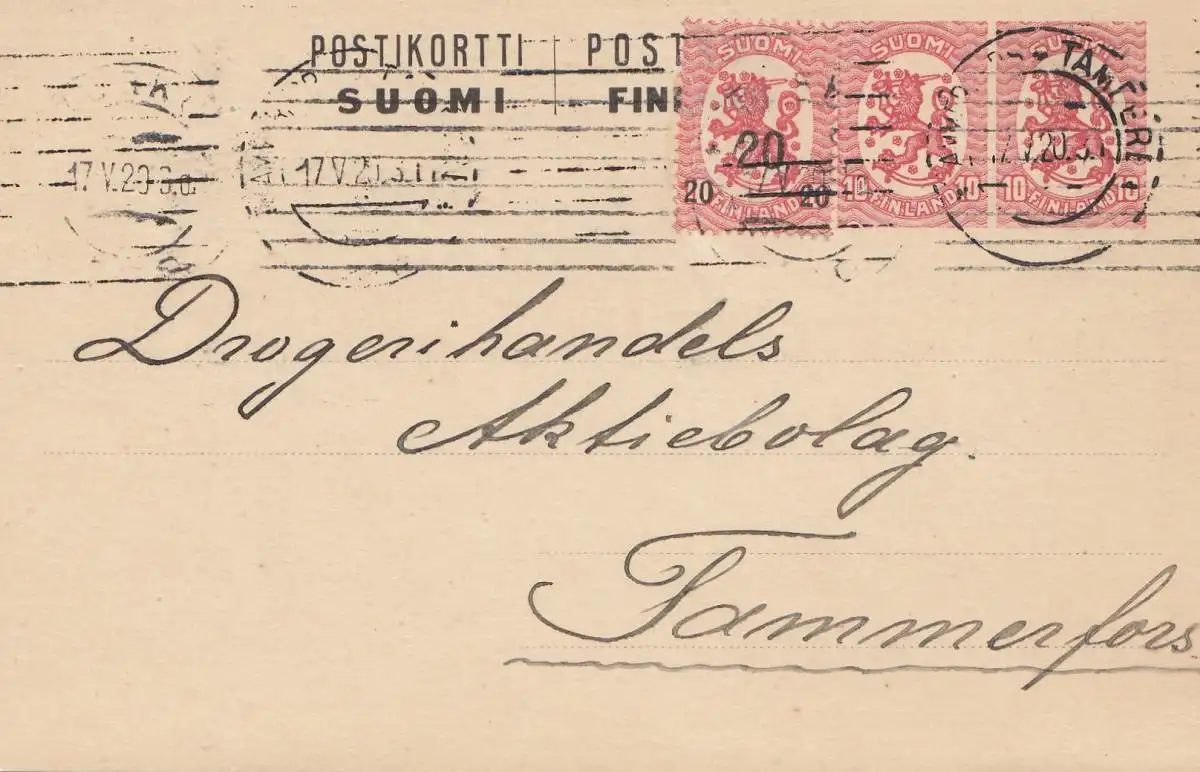 POSTIKORTTI POST
SUOMI FIN
SUOMI SUOMI SUOMI
20
20 20 10 10 10 10
FINLAND FINLAND FINLAND
TAMPERE
17.V.20.3.
17.V.20.3.
17.V.20.3.
Drogerihandels
Aktiebolag.
Tammerfors